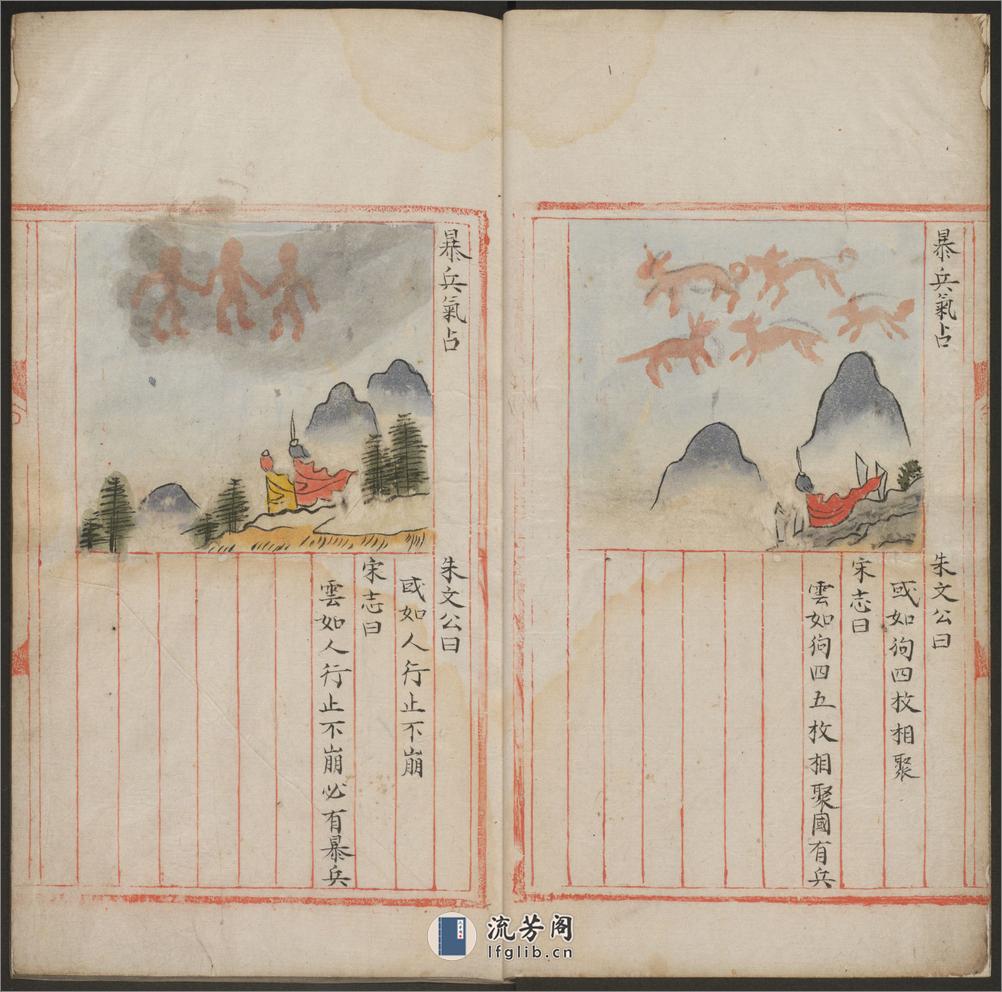 暴兵氣占
朱文公曰
或如狥四枚相聚
宋志曰
雲如狥四五枚相聚國有兵
暴兵氣占
朱文公曰
或如人行止不崩
宋志曰
雲如人行止不崩必有暴兵
流芳阁
lfglib.cn